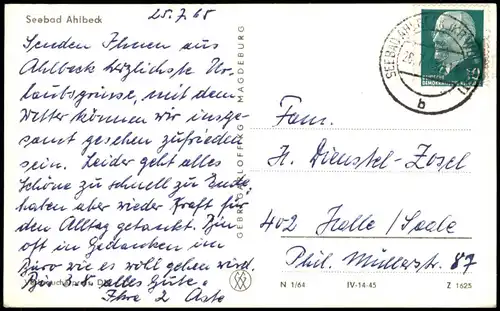 Seebad Ahlbeck
25.7.65
Senden Ihnen aus
Ahlbeck herzlichste Ur-
laubsgrüsse, mit dem
Wetter können wir insge-
samt gesehen zufrieden
sein. Leider geht alles
Schöne zu schnell zu Ende
haben aber wieder Kraft für
den Alltag getankt. Bin
oft in Gedanken im
Büro wie es wohl gehen wird.
Bis 3.8. alles Gute.
Ihre 2
GEBR. GARLOFF KG, MAGDEBURG
SEEBAD AHLBECK
b
DEUTSCHE
DEMOKRATISCHE
Fam.
H. Dienstel-Zosel
402 Halle/Saale
Phil. Müllerstr. 87
N 1/64 IV-14-45 Z 1625